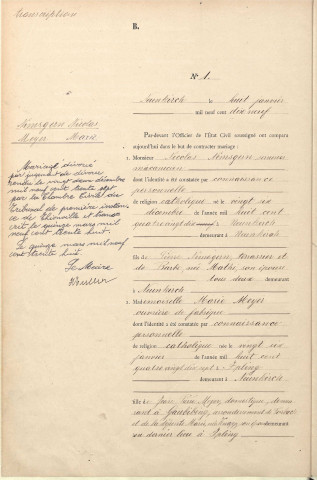 transcription
B.
No 1.
Neunkirch le huit janvier
mil neuf cent dix neuf
Par-devant l'Officier de l'État Civil soussigné ont comparu
aujourd'hui dans le but de contracter mariage :
1. Monsieur Nicolas Nimsgern
mécanicien
dont l'identité a été constatée par connaissance
personnelle
de religion catholique né le vingt six
décembre de l'année mil huit cent
quatre vingt dix à Neunkirch
demeurant à Neunkirch
fils de Pierre Nimsgern, terrassier et
de née Mathis, son épouse
tous deux demeurant à
Neunkirch
2. Mademoiselle Marie Meyer
ouvrière de fabrique
dont l'identité a été constatée par connaissance
personnelle
de religion catholique née le vingt six
janvier de l'année mil huit cent
quatre vingt dix sept à Ipling
demeurant à Neunkirch
fille de Jean Pierre Meyer, domestique, demeu-
rant à Gaubiving, arrondissement de Forbach
et de la défunte Marie
son dernier lieu à Ipling
Nimsgern Nicolas
Meyer Marie
Mariage divorcé
par jugement de divorce
rendu le vingt deux décembre
mil neuf cent trente sept
par la Chambre Civile du
Tribunal de première instan
ce de Thionville et trans
crit le quinze mars mil
neuf cent trente huit.
Le quinze mars mil neuf
cent trente huit.
Le Maire